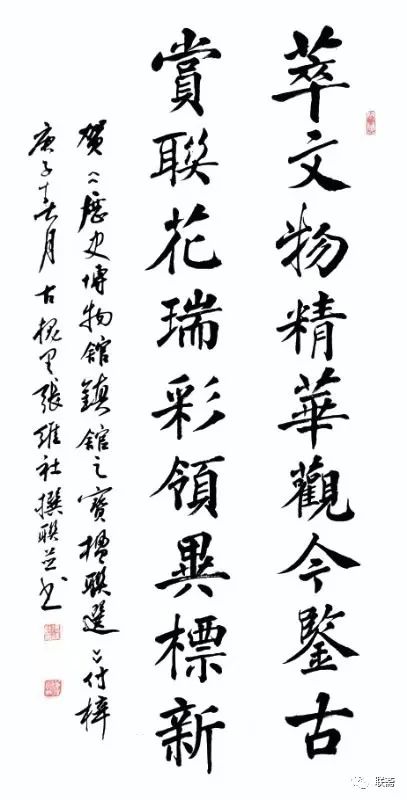 萃文物精華觀今鑒古
賞聯花瑞彩領異標新
賀《歷史博物館鎮館之寶楹聯選》付梓
庚子月古槐里張維社撰聯並书
联斋